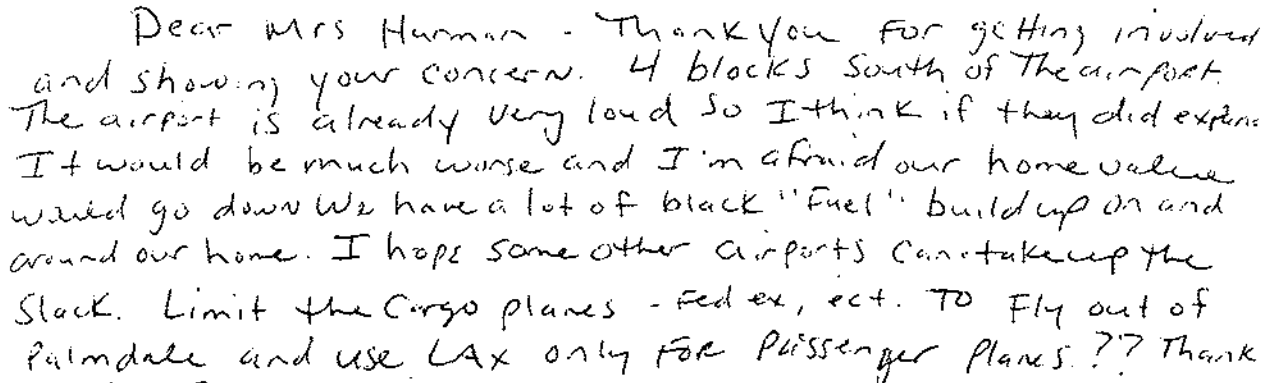 Dear Mrs Harman - Thank you For getting involved
and showing your concern. 4 blocks South of The airport.
The airport is already very loud so I think if they did
It would be much worse and I'm afraid our home value
would go down We have a lot of black "Fuel" build up on and
around our home. I hope some other airports can take up the
Slack. Limit the Cargo planes - Fed ex, ect. TO Fly out of
Palmdale and use LAX only FOR Passenger Planes.?? Thank